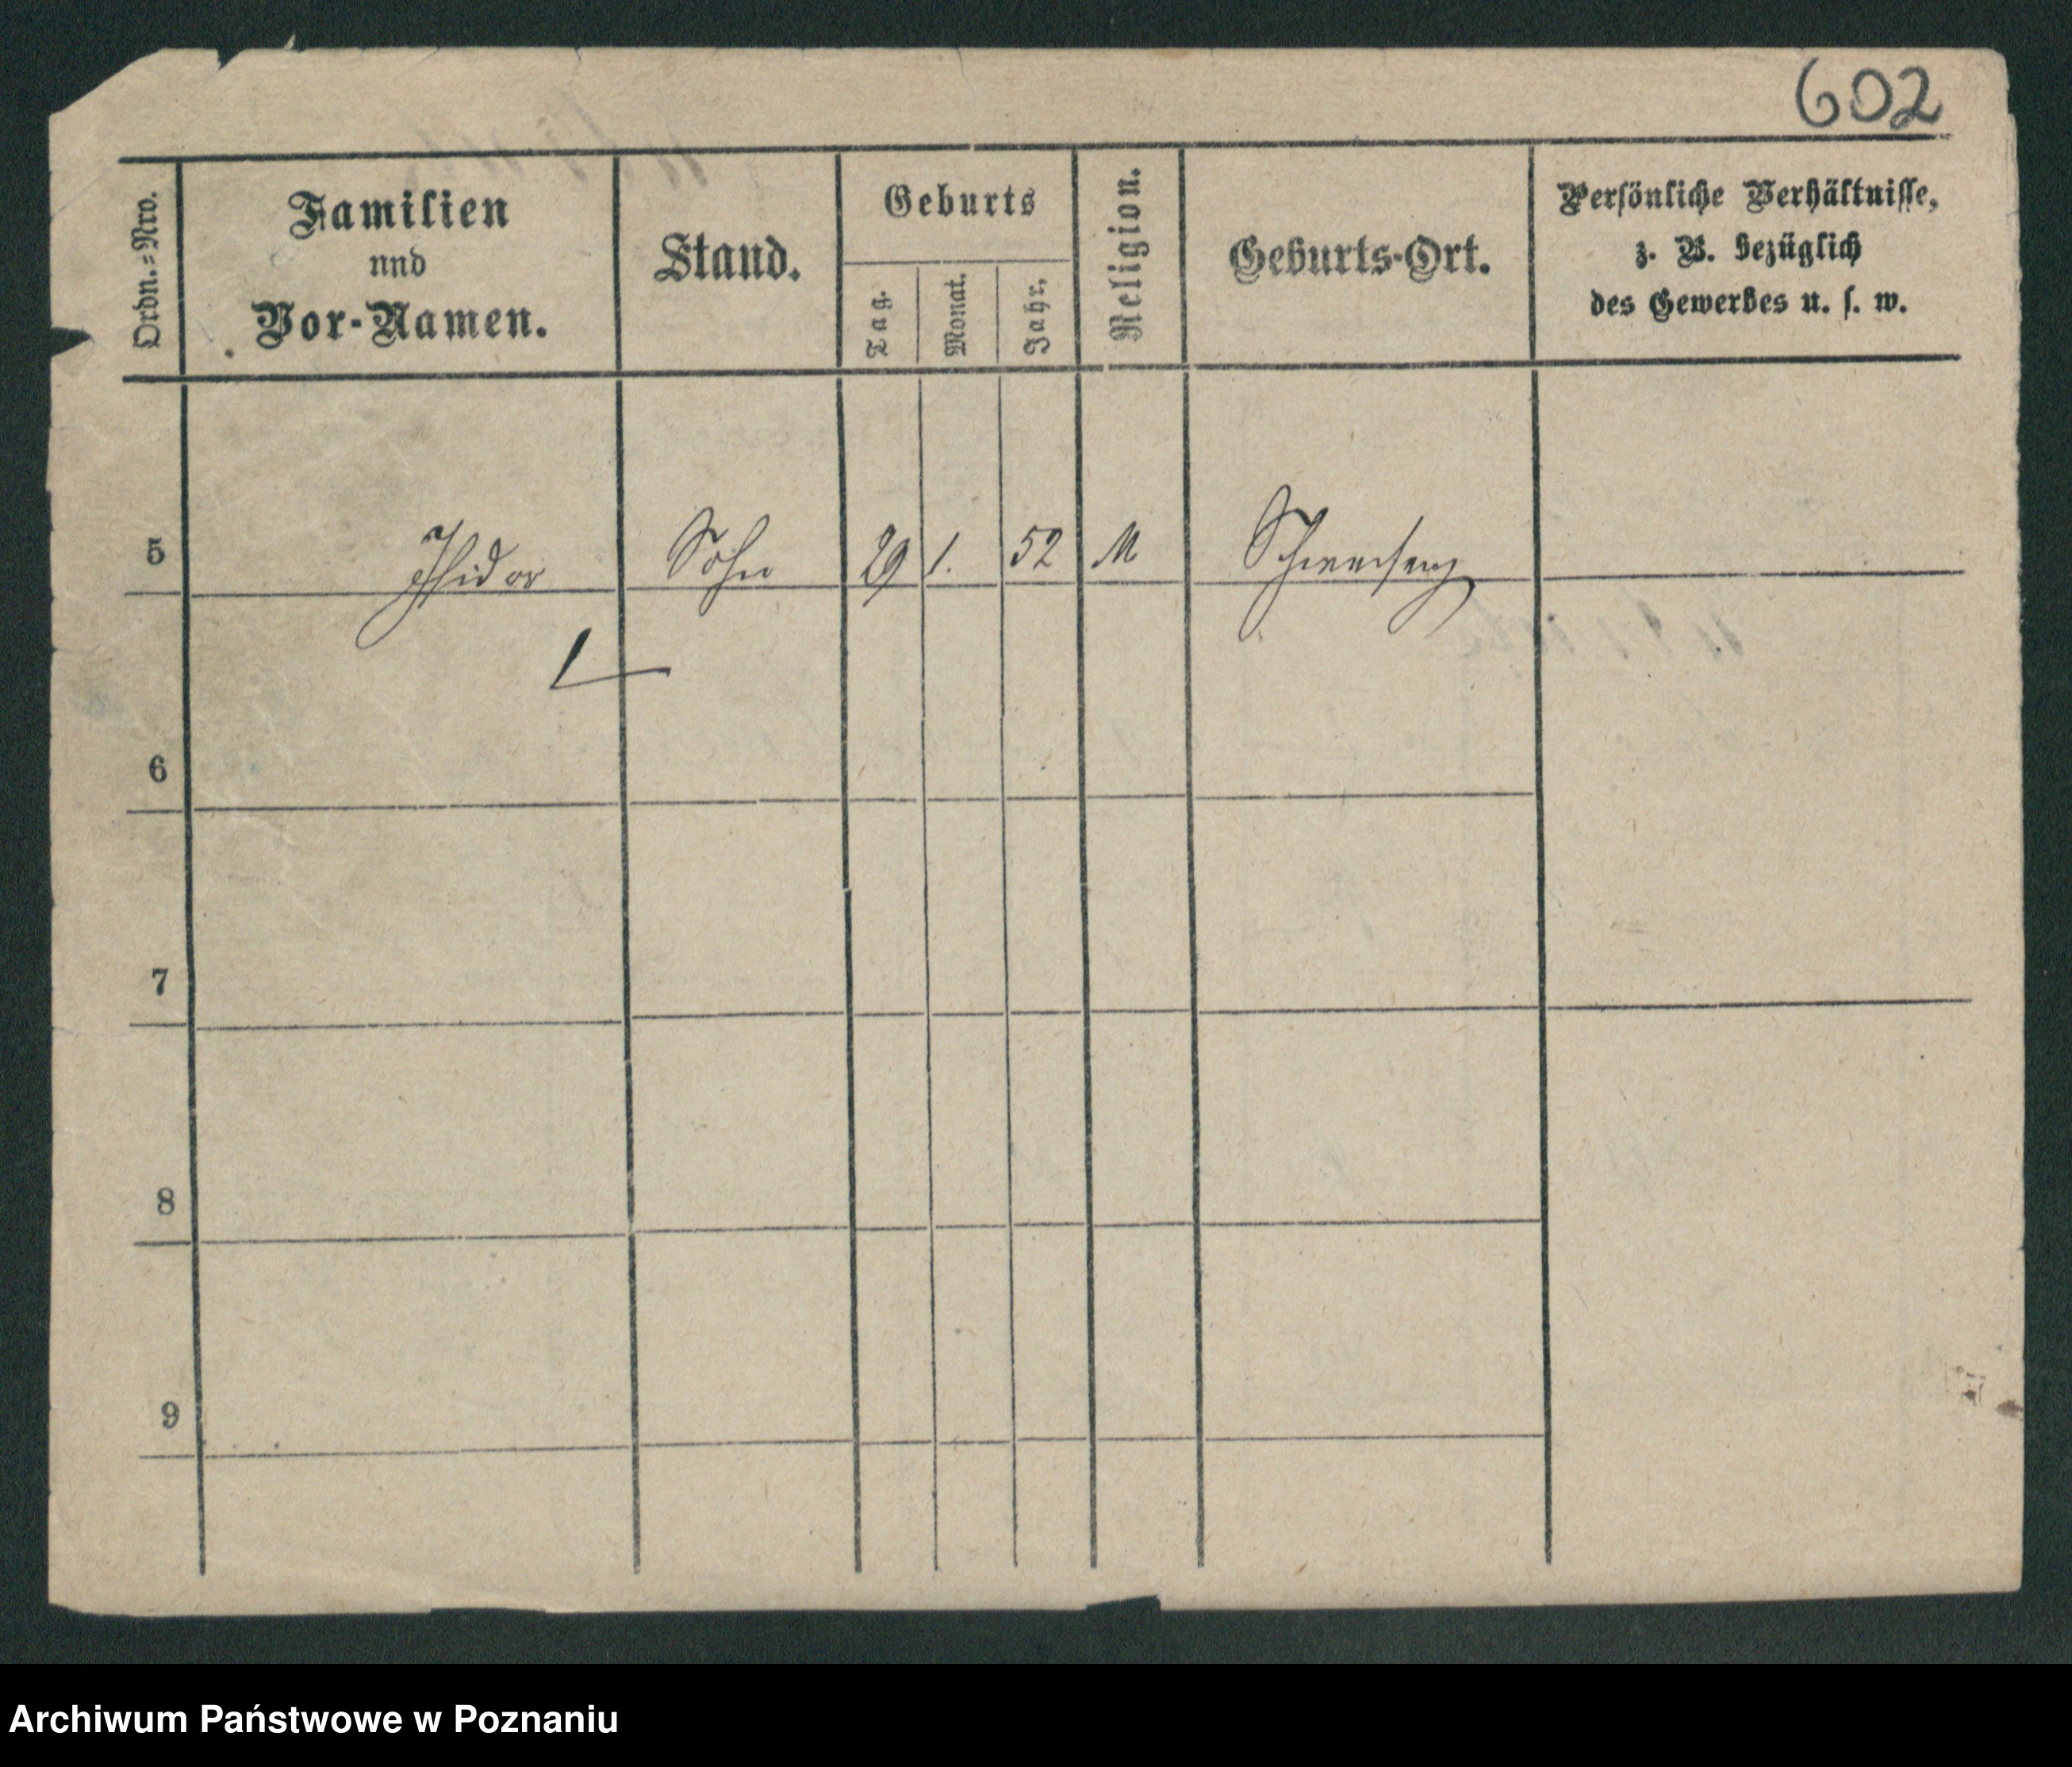 602
Ordn.=Nro.
Familien
und
Vor-Namen.
Stand.
Geburts
Tag.
Monat.
Jahr.
Religion.
Geburts-Ort.
Persönliche Verhältnisse,
z. B. bezüglich
des Gewerbes u. s. w.
5 Isidor Sohn 29 1. 52 M Schwersenz
6
7
8
9
Archiwum Państwowe w Poznaniu